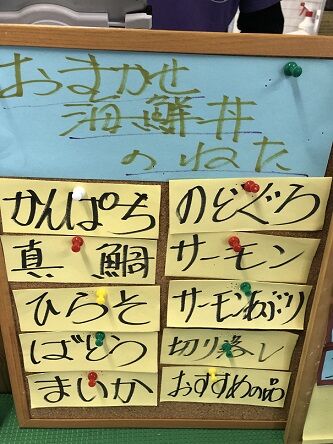 おまかせ
海鮮丼
のねた
かんぱち
のどぐろ
真鯛
サーモン
ひらそ
サーモンあぶり
ばとう
切り落し
まいか
おすすめの品